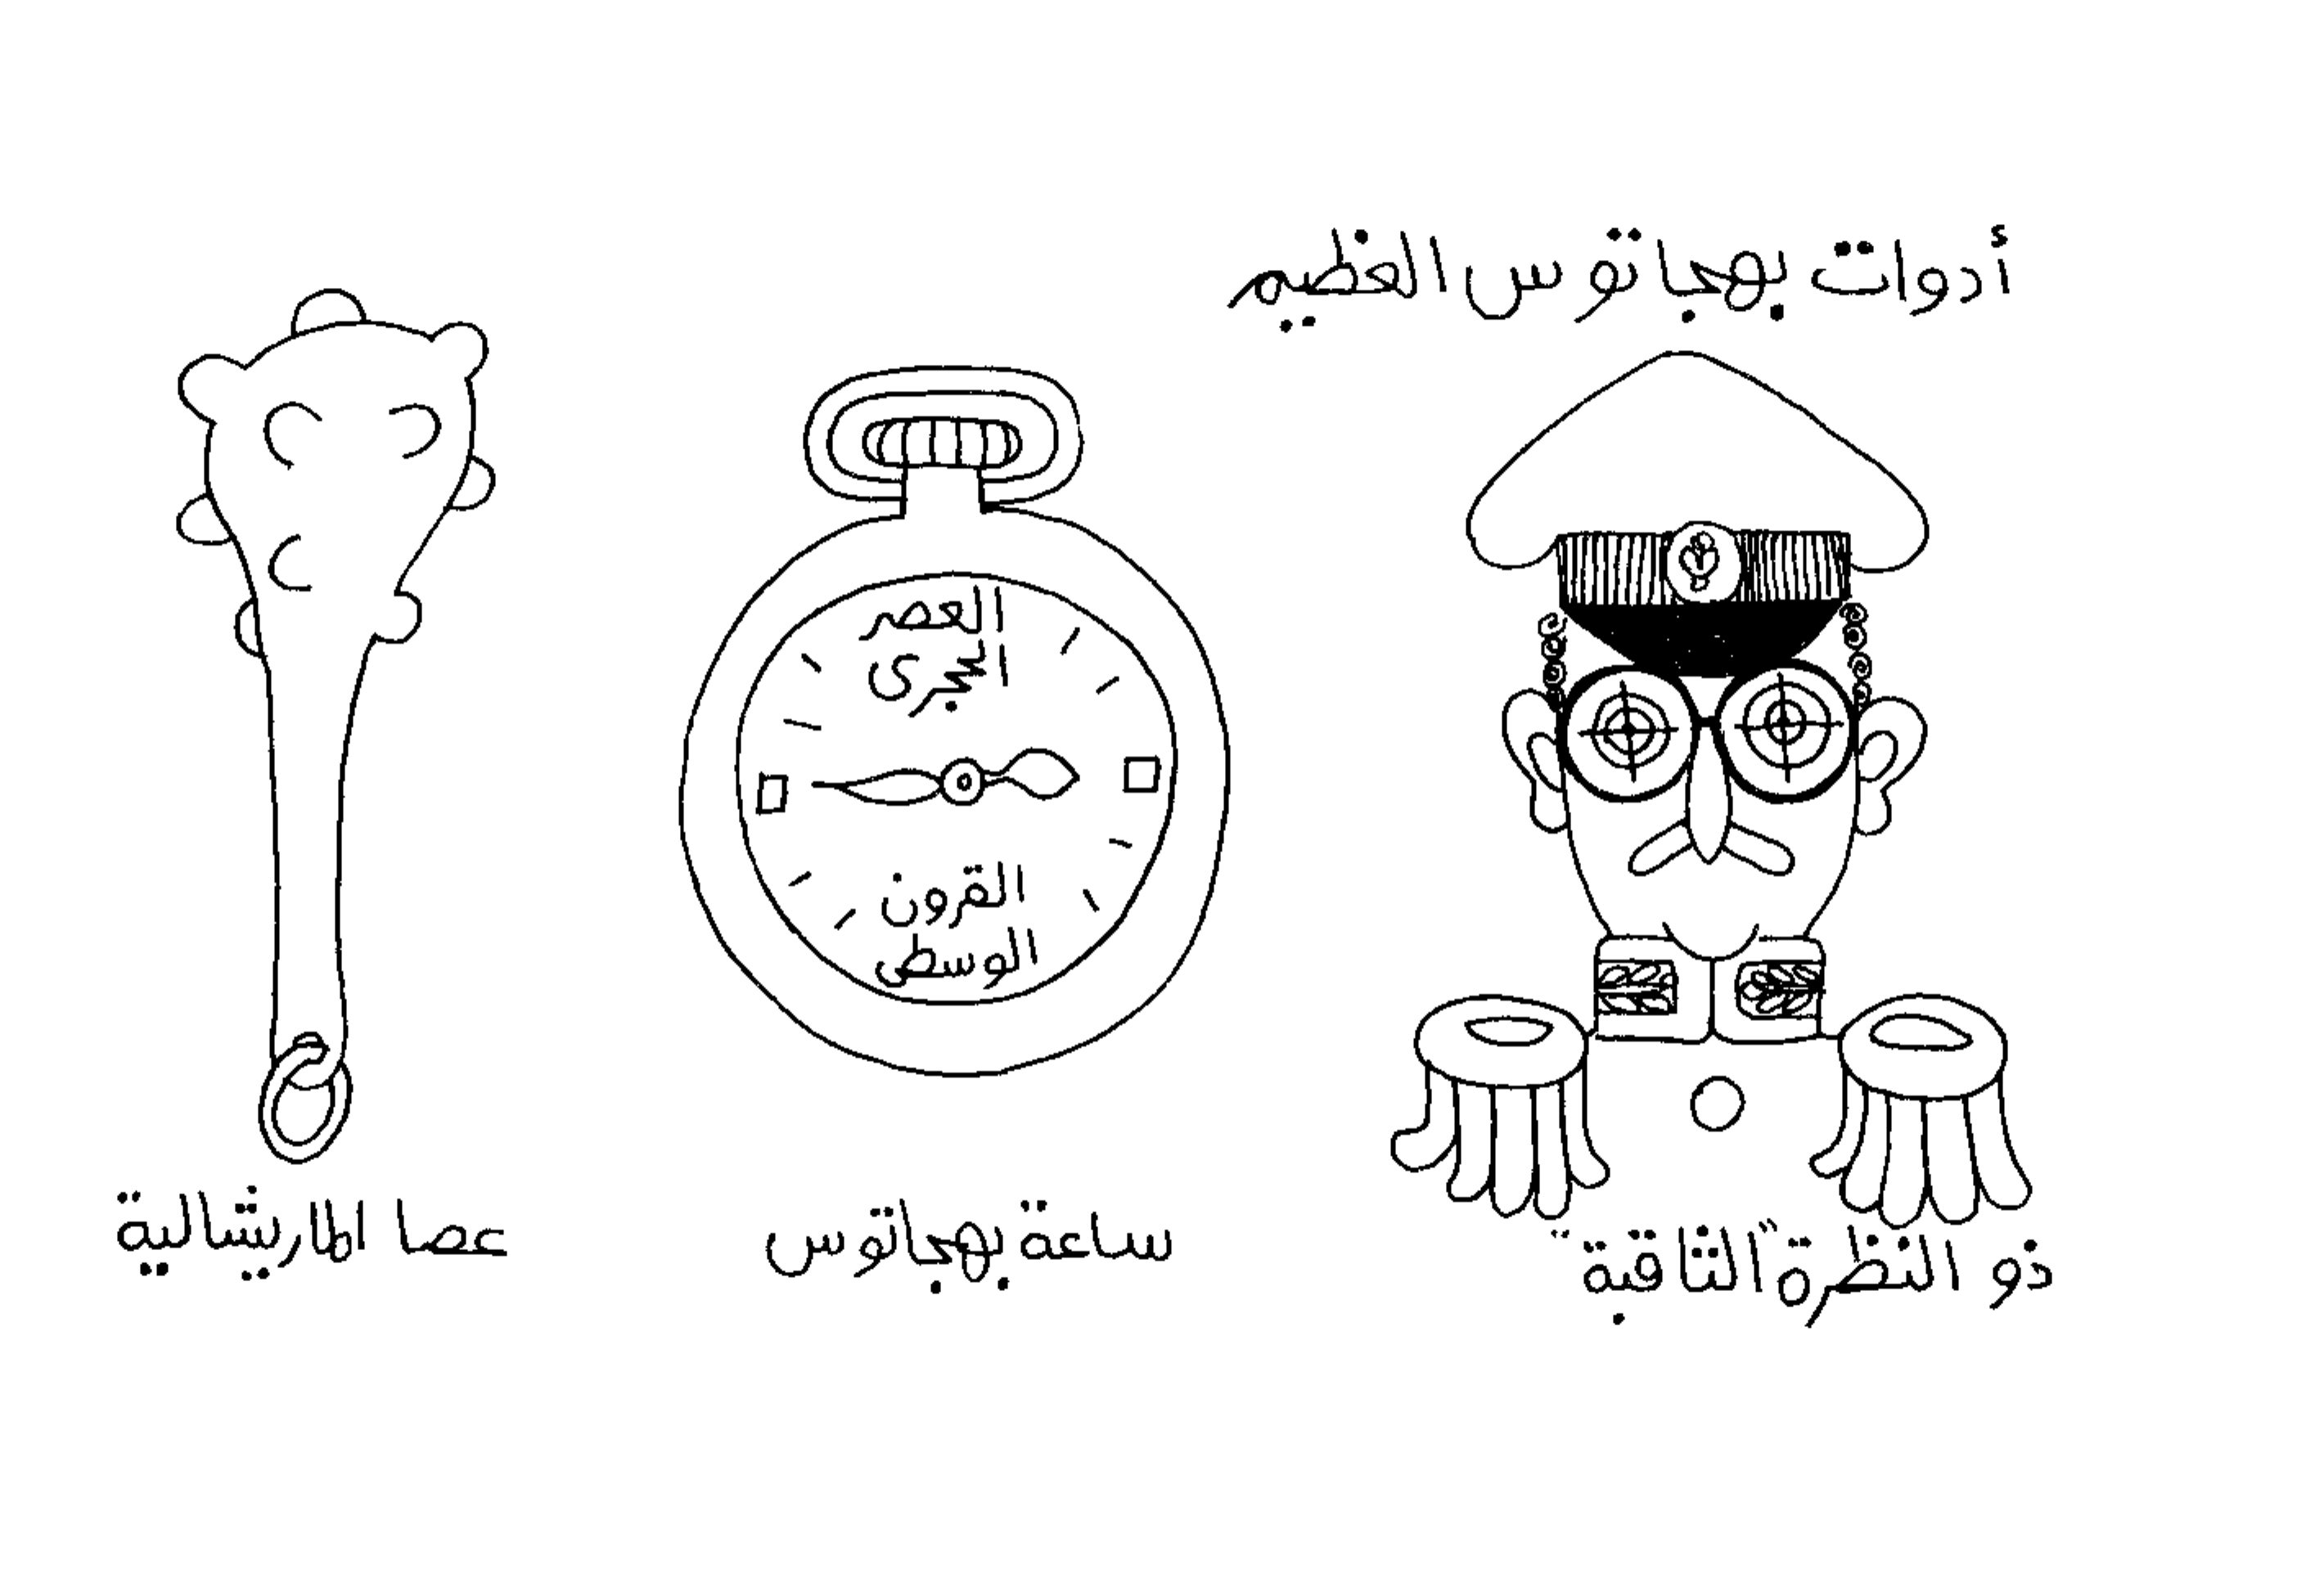 أدوات بهجاتوس العظيم
ذو النظرة "الثاقبة"
العصر
الحجرى
القرون
الوسطى
ساعة بهجاتوس
عصا الماريشالية